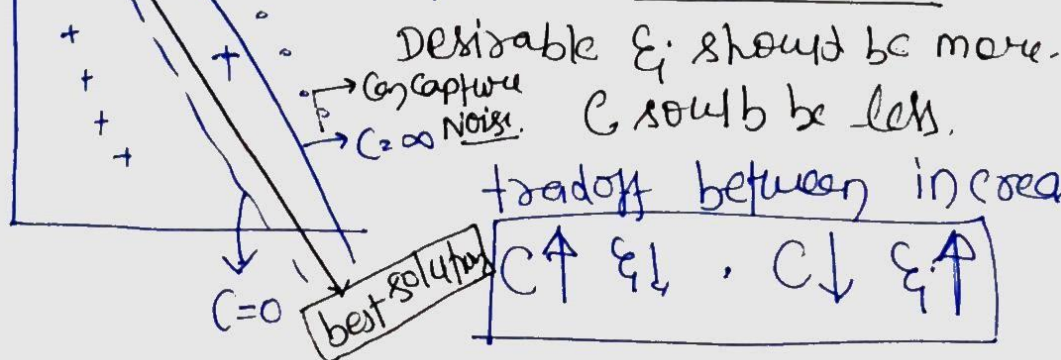 Desirable ξi should be more.
Can Capture
Noise.
C=∞
C soulb be less.
tradoff between increa
C=0
best solution
C↑ ξ↓ . C↓ ξi↑